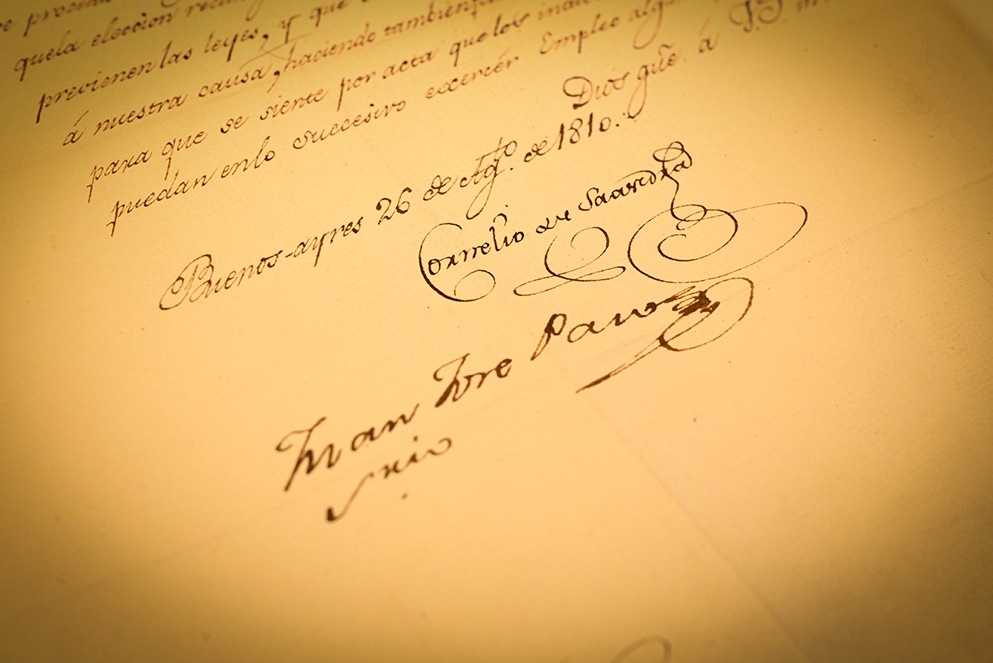 e proxima
quela eleccion
previenen las leyes, y que
á nuestra causa, haciendo tambien
para que se siente por acta que los indi
puedan enlo succesivo exercér Empleo algu
Dios gue. á
Buenos-ayres 26 de Agto. de 1810.
Cornelio de Saavedra
Juan Jose Passo
Srio